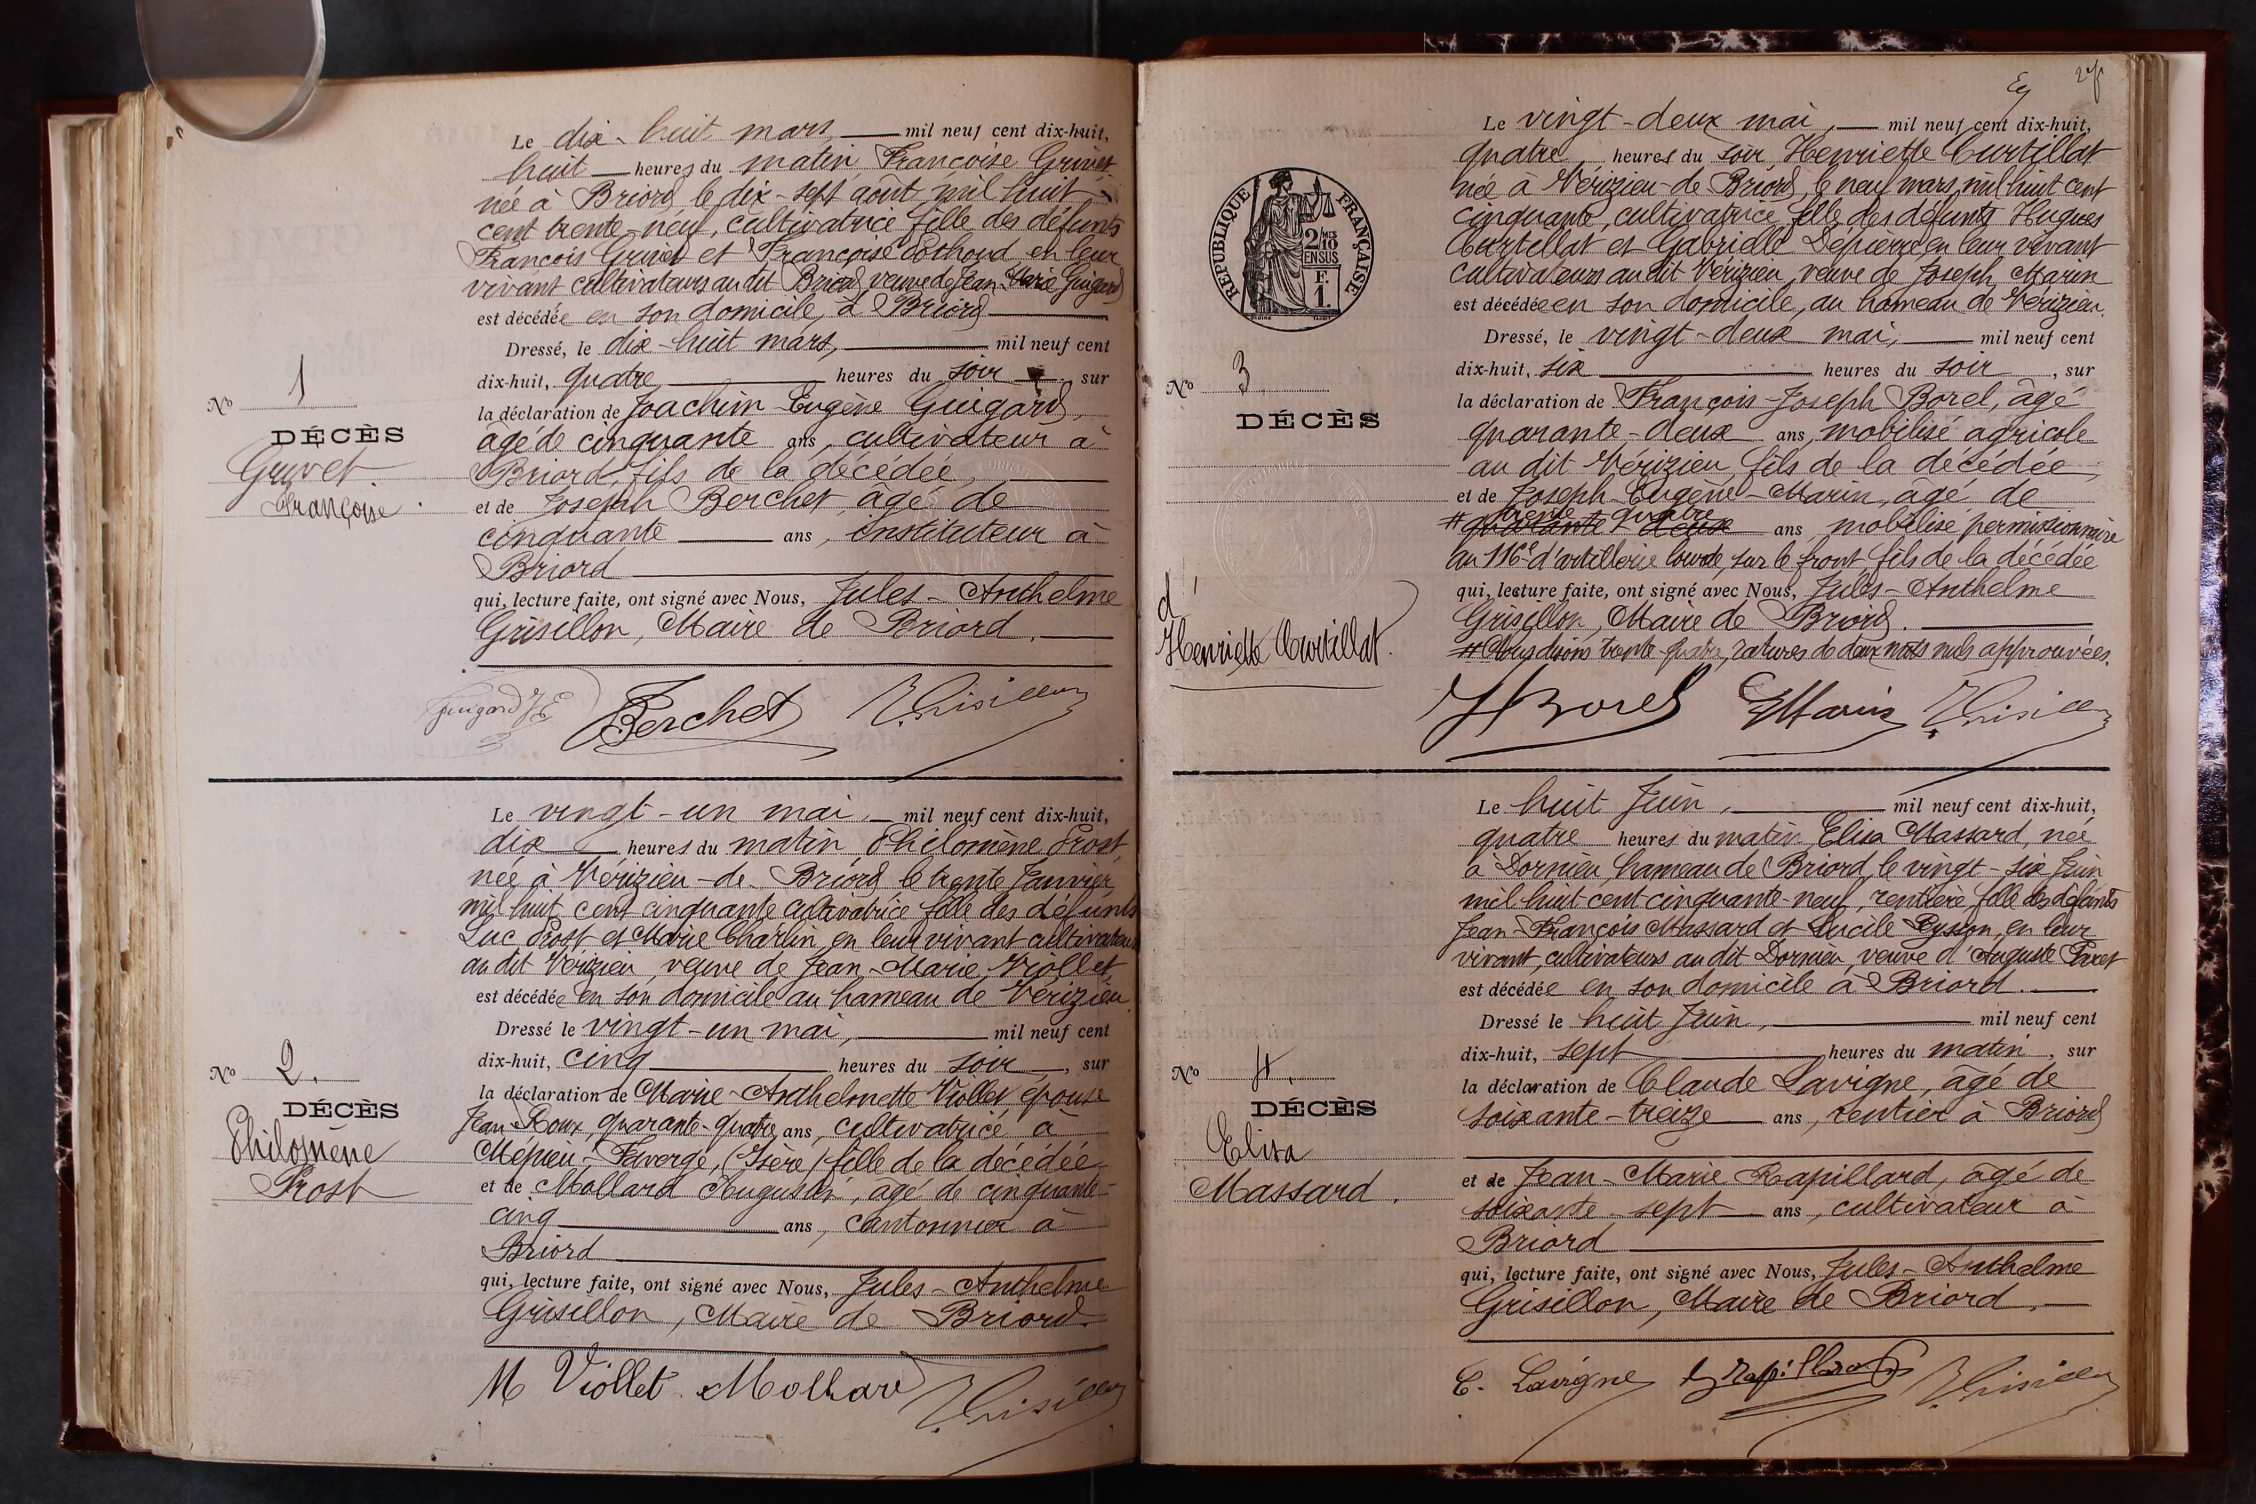 Le dix-huit mars, mil neuf cent dix-huit,
huit heures du matin Françoise Grivet
née à Briord, le dix-sept août mil huit
cent trente-neuf, cultivatrice fille des défunts
François Grivet et Françoise Pothoud, en leur
vivant cultivateurs au dit Briord, veuve de Jean-Marie Guigard
est décédée en son domicile, à Briord
Dressé, le dix-huit mars, mil neuf cent
dix-huit, quatre heures du soir, sur
la déclaration de Joachim-Eugène Guigard,
âgé de cinquante ans, cultivateur à
Briord, fils de la décédée,
et de Joseph Berchet, âgé de
cinquante ans, instituteur à
Briord
qui, lecture faite, ont signé avec Nous, Jules-Anthelme
Grisillon, Maire de Briord.
No 1
DÉCÈS
Grivet
Françoise
Guigard J E Berchet J. Grisillon
Le vingt-un mai, mil neuf cent dix-huit,
dix heures du matin Philomène Prost,
née à Vérizieu-de-Briord le trente Janvier
mil huit cent cinquante cultivatrice fille des défunts
Luc Prost et Marie Charlin, en leur vivant cultivateurs
au dit Vérizieu, veuve de Jean-Marie Viollet,
est décédée en son domicile au hameau de Vérizieu
Dressé le vingt-un mai, mil neuf cent
dix-huit, cinq heures du soir, sur
la déclaration de Marie-Anthelmette Viollet, épouse
Jean Roux, quarante-quatre ans, cultivatrice à
Mépieu-Faverge, (Isère) fille de la décédée
et de Mollard Augustin, âgé de cinquante-
cinq ans, cantonnier à
Briord
qui, lecture faite, ont signé avec Nous, Jules-Anthelme
Grisillon, Maire de Briord.
No 2.
DÉCÈS
Philomène
Prost
M Viollet Mollard J. Grisillon
Le vingt-deux mai, mil neuf cent dix-huit,
quatre heures du soir Henriette Curtillat
née à Vérizieu-de-Briord, le neuf mars mil huit cent
cinquante, cultivatrice, fille des défunts Hugues
Curtillat et Gabrielle Depierre, en leur vivant
cultivateurs au dit Vérizieu, veuve de Joseph Marin
est décédée en son domicile, au hameau de Vérizieu.
Dressé, le vingt-deux mai, mil neuf cent
dix-huit, six heures du soir, sur
la déclaration de François-Joseph Borel, âgé
quarante-deux ans, mobilisé agricole
au dit Vérizieu, fils de la décédée
et de Joseph-Eugène-Marin, âgé de
trente quatre
# quarante deux ans, mobilisé permissionnaire
au 116e d'artillerie lourde, sur le front, fils de la décédée
qui, lecture faite, ont signé avec Nous, Jules-Anthelme
Grisillon, Maire de Briord.
# Nous disons trente-quatre, ratures de deux mots nuls approuvées.
RÉPUBLIQUE FRANÇAISE
2/10 MES
EN SUS
F.
1.
No 3.
DÉCÈS
Henriette Curtillat.
J Borel E Marin J. Grisillon
Le huit Juin, mil neuf cent dix-huit,
quatre heures du matin Elisa Massard, née
à Dornieu, hameau de Briord, le vingt-six Juin
mil huit cent cinquante-neuf, rentière fille des défunts
Jean-François Massard et Lucile Peysson, en leur
vivant, cultivateurs au dit Dornieu, veuve d'Auguste Favet
est décédée en son domicile à Briord.
Dressé le huit Juin, mil neuf cent
dix-huit, sept heures du matin, sur
la déclaration de Claude Lavigne, âgé de
soixante-treize ans, rentier à Briord
et de Jean-Marie Rapillard, âgé de
soixante-sept ans, cultivateur à
Briord
qui, lecture faite, ont signé avec Nous, Jules-Anthelme
Grisillon, Maire de Briord.
No 4.
DÉCÈS
Elisa
Massard.
C. Lavigne Rapillard J. Grisillon